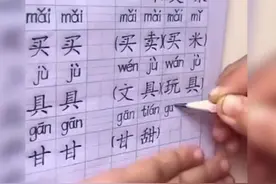 mǎi mǎi mǎi mài mǎi mǐ
买 买 (买 卖)(买 米
jù jù wén jù wán jù
具 具 (文 具)(玩 具)
gān gān gān tián gu
甘 甘 (甘 甜)